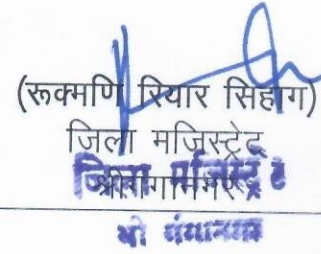 (रूक्मणि रियार सिहाग)
जिला मजिस्ट्रेट
श्रीगंगानगर
जिला मजिस्ट्रेट
श्री गंगानगर